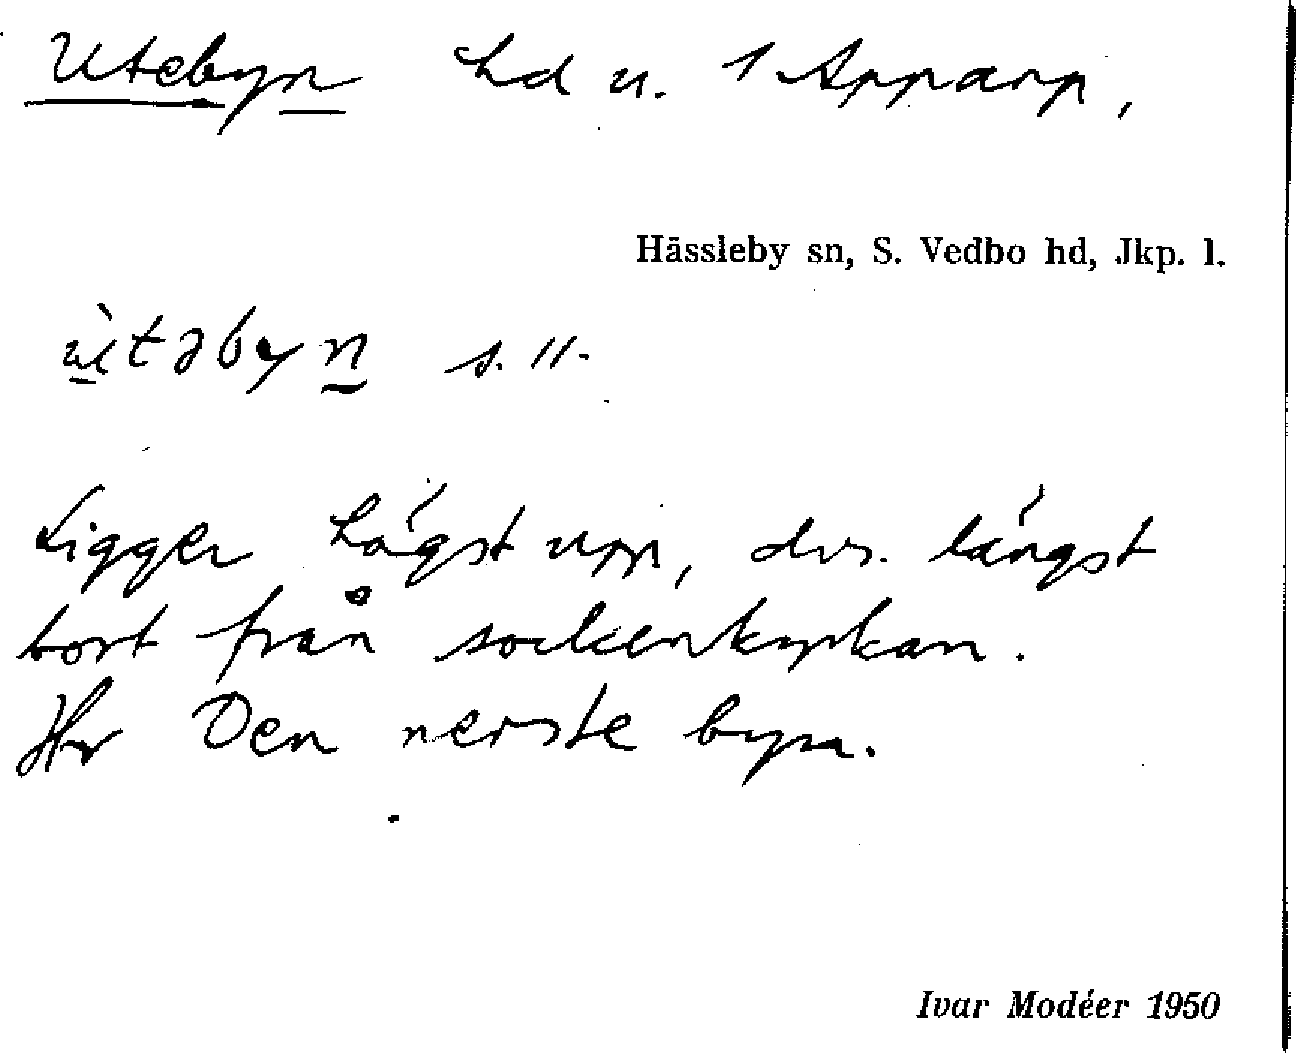 Utebyn hd u. 1 Apparp,
Hässleby sn, S. Vedbo hd, Jkp. l.
ùtəbyn s. 11.
Ligger högst upp, dvs. längst
bort från sockenkyrkan.
Hr Den nerste byn.
Ivar Modéer 1950